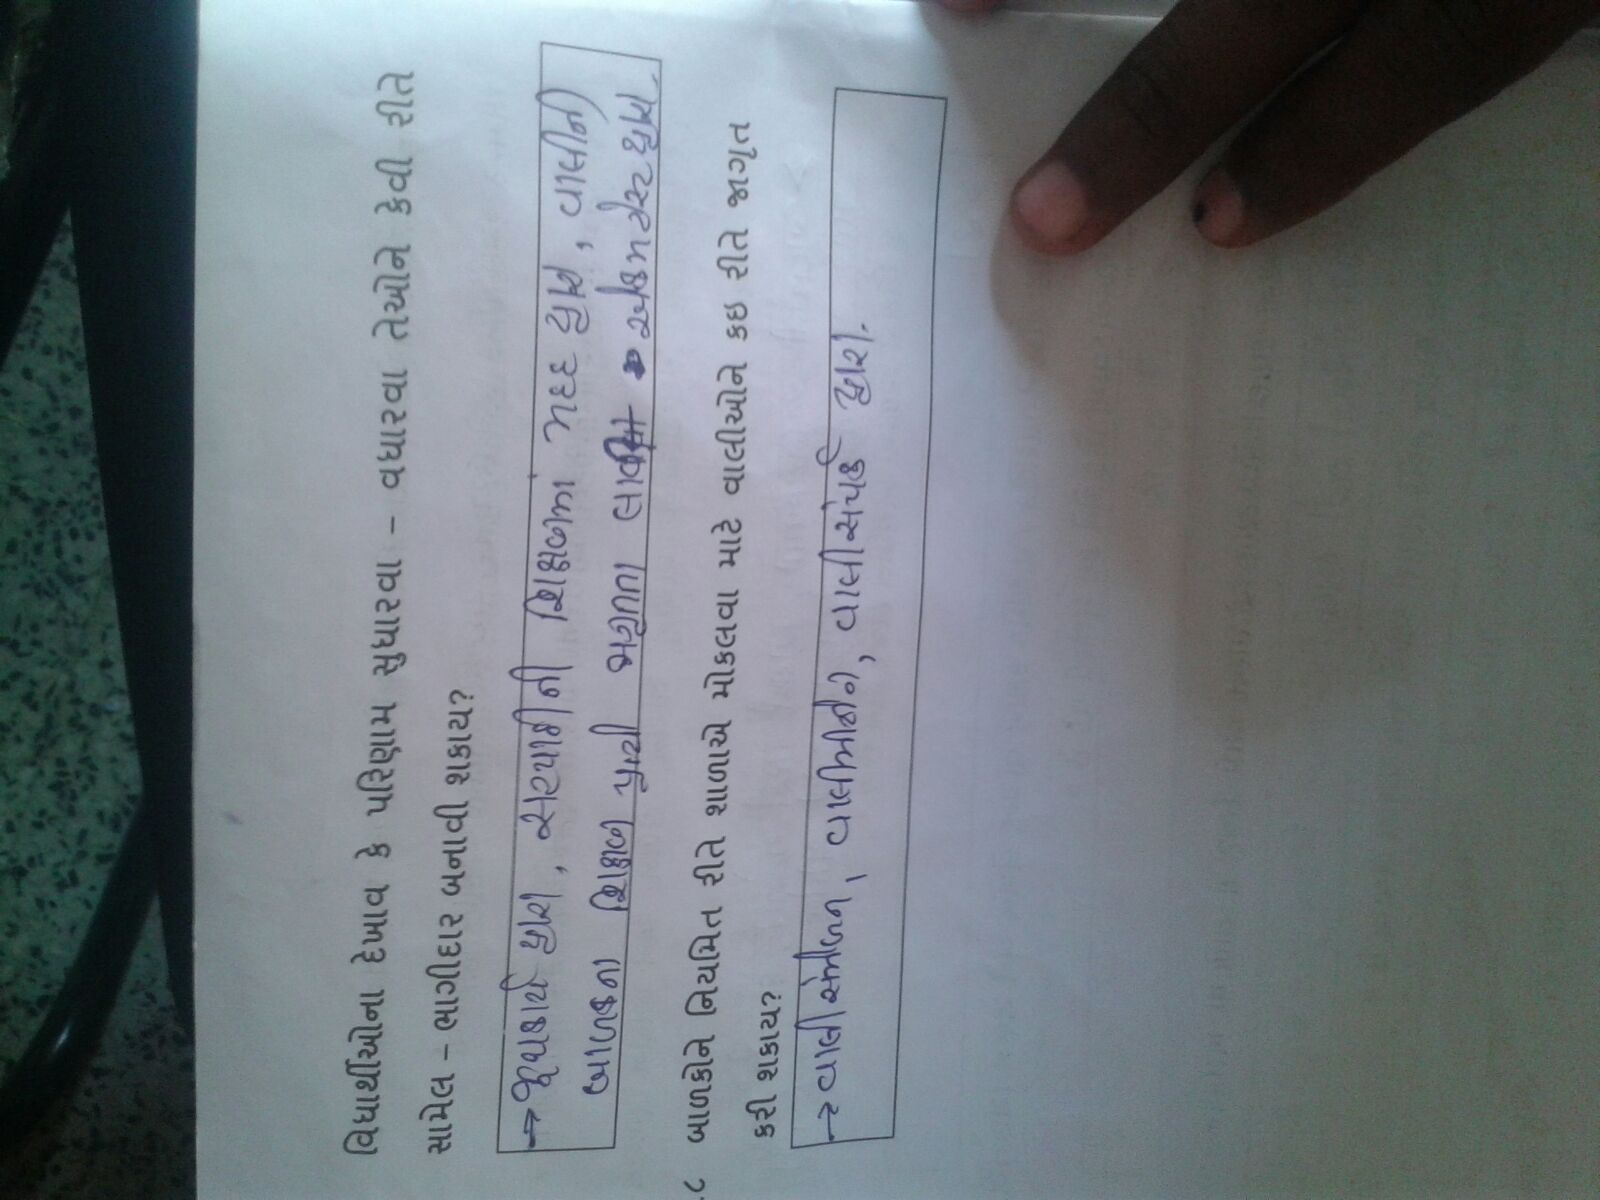 વિદ્યાર્થીઓના દેખાવ કે પરિણામ સુધારવા - વધારવા તેઓને કેવી રીતે
સામેલ - ભાગીદાર બનાવી શકાય?
→ જૂથકાર્ય દ્વારા, સહાધ્યાયીની શિક્ષણમાં મદદ દ્વારા, વાલીની
બાળકના શિક્ષણ પ્રત્યે જાગૃતતા લાવી દ્વારા.
.૮ બાળકોને નિયમિત રીતે શાળાએ મોકલવા માટે વાલીઓને કઇ રીતે જાગૃત
કરી શકાય?
→ વાલીસંમેલન, વાલીમીટીંગ, વાલીસંપર્ક દ્વારા.